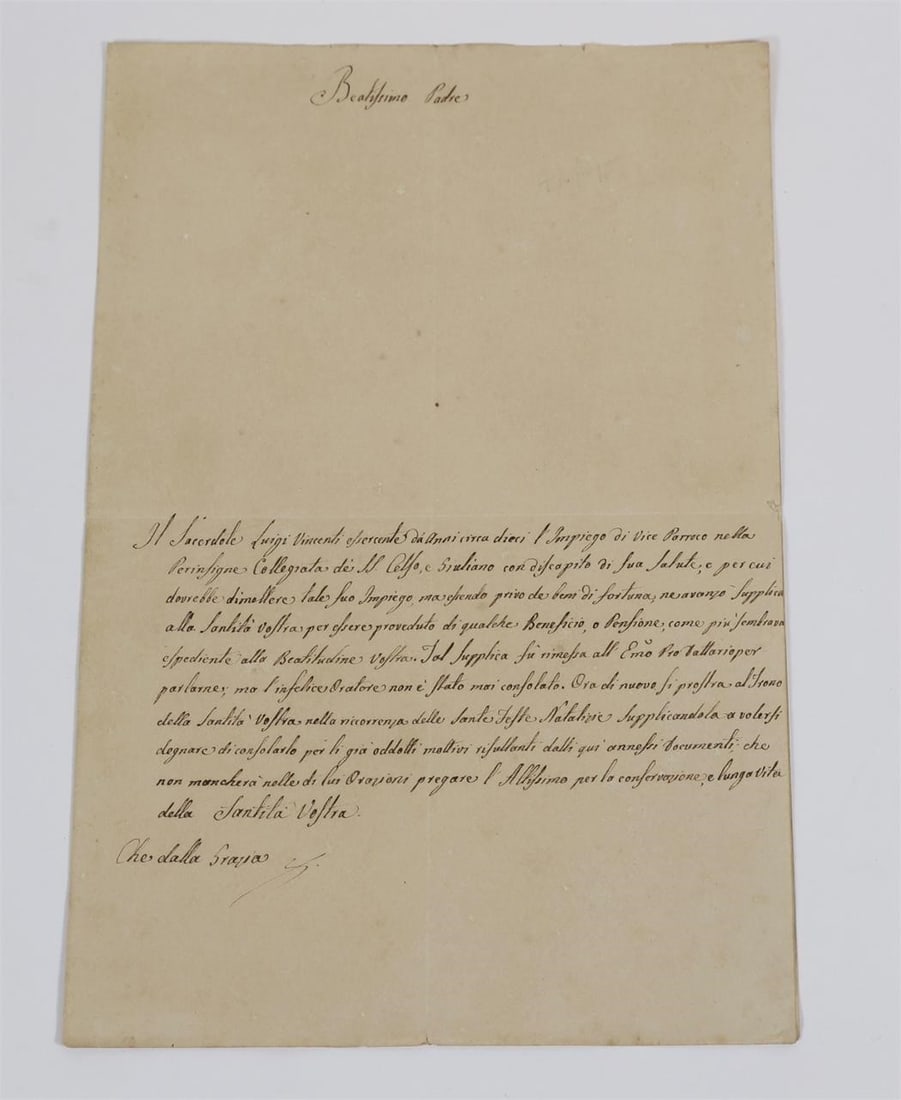 Beatissimo Padre
Il Sacerdote Luigi Vincenti esercente da Anni circa dieci l'Impiego di Vice Parroco nella
Perinsigne Collegiata de' SS. Celso, e Giuliano con discapito di sua Salute, e per cui
dovrebbe dimettere tale suo Impiego, ma essendo privo de beni di fortuna, ne avanzò Supplica
alla Santità Vostra per essere proveduto di qualche Beneficio, o Pensione, come più sembrava
espediente alla Beatitudine Vostra. Tal Supplica fù rimessa all' Emo Pro Dattario per
parlarne; ma l'infelice Oratore non è stato mai consolato. Ora di nuovo si prostra al Trono
della Santità Vostra nella ricorrenza delle Sante Feste Natalizie Supplicandola a volersi
degnare di consolarlo per li già addotti mottivi risultanti dalli quì annessi Documenti; che
non mancherà nelle di lui Orazioni pregare l'Altissimo per la conservazione, e lunga vita
della Santità Vostra.
Che dalla Grazia